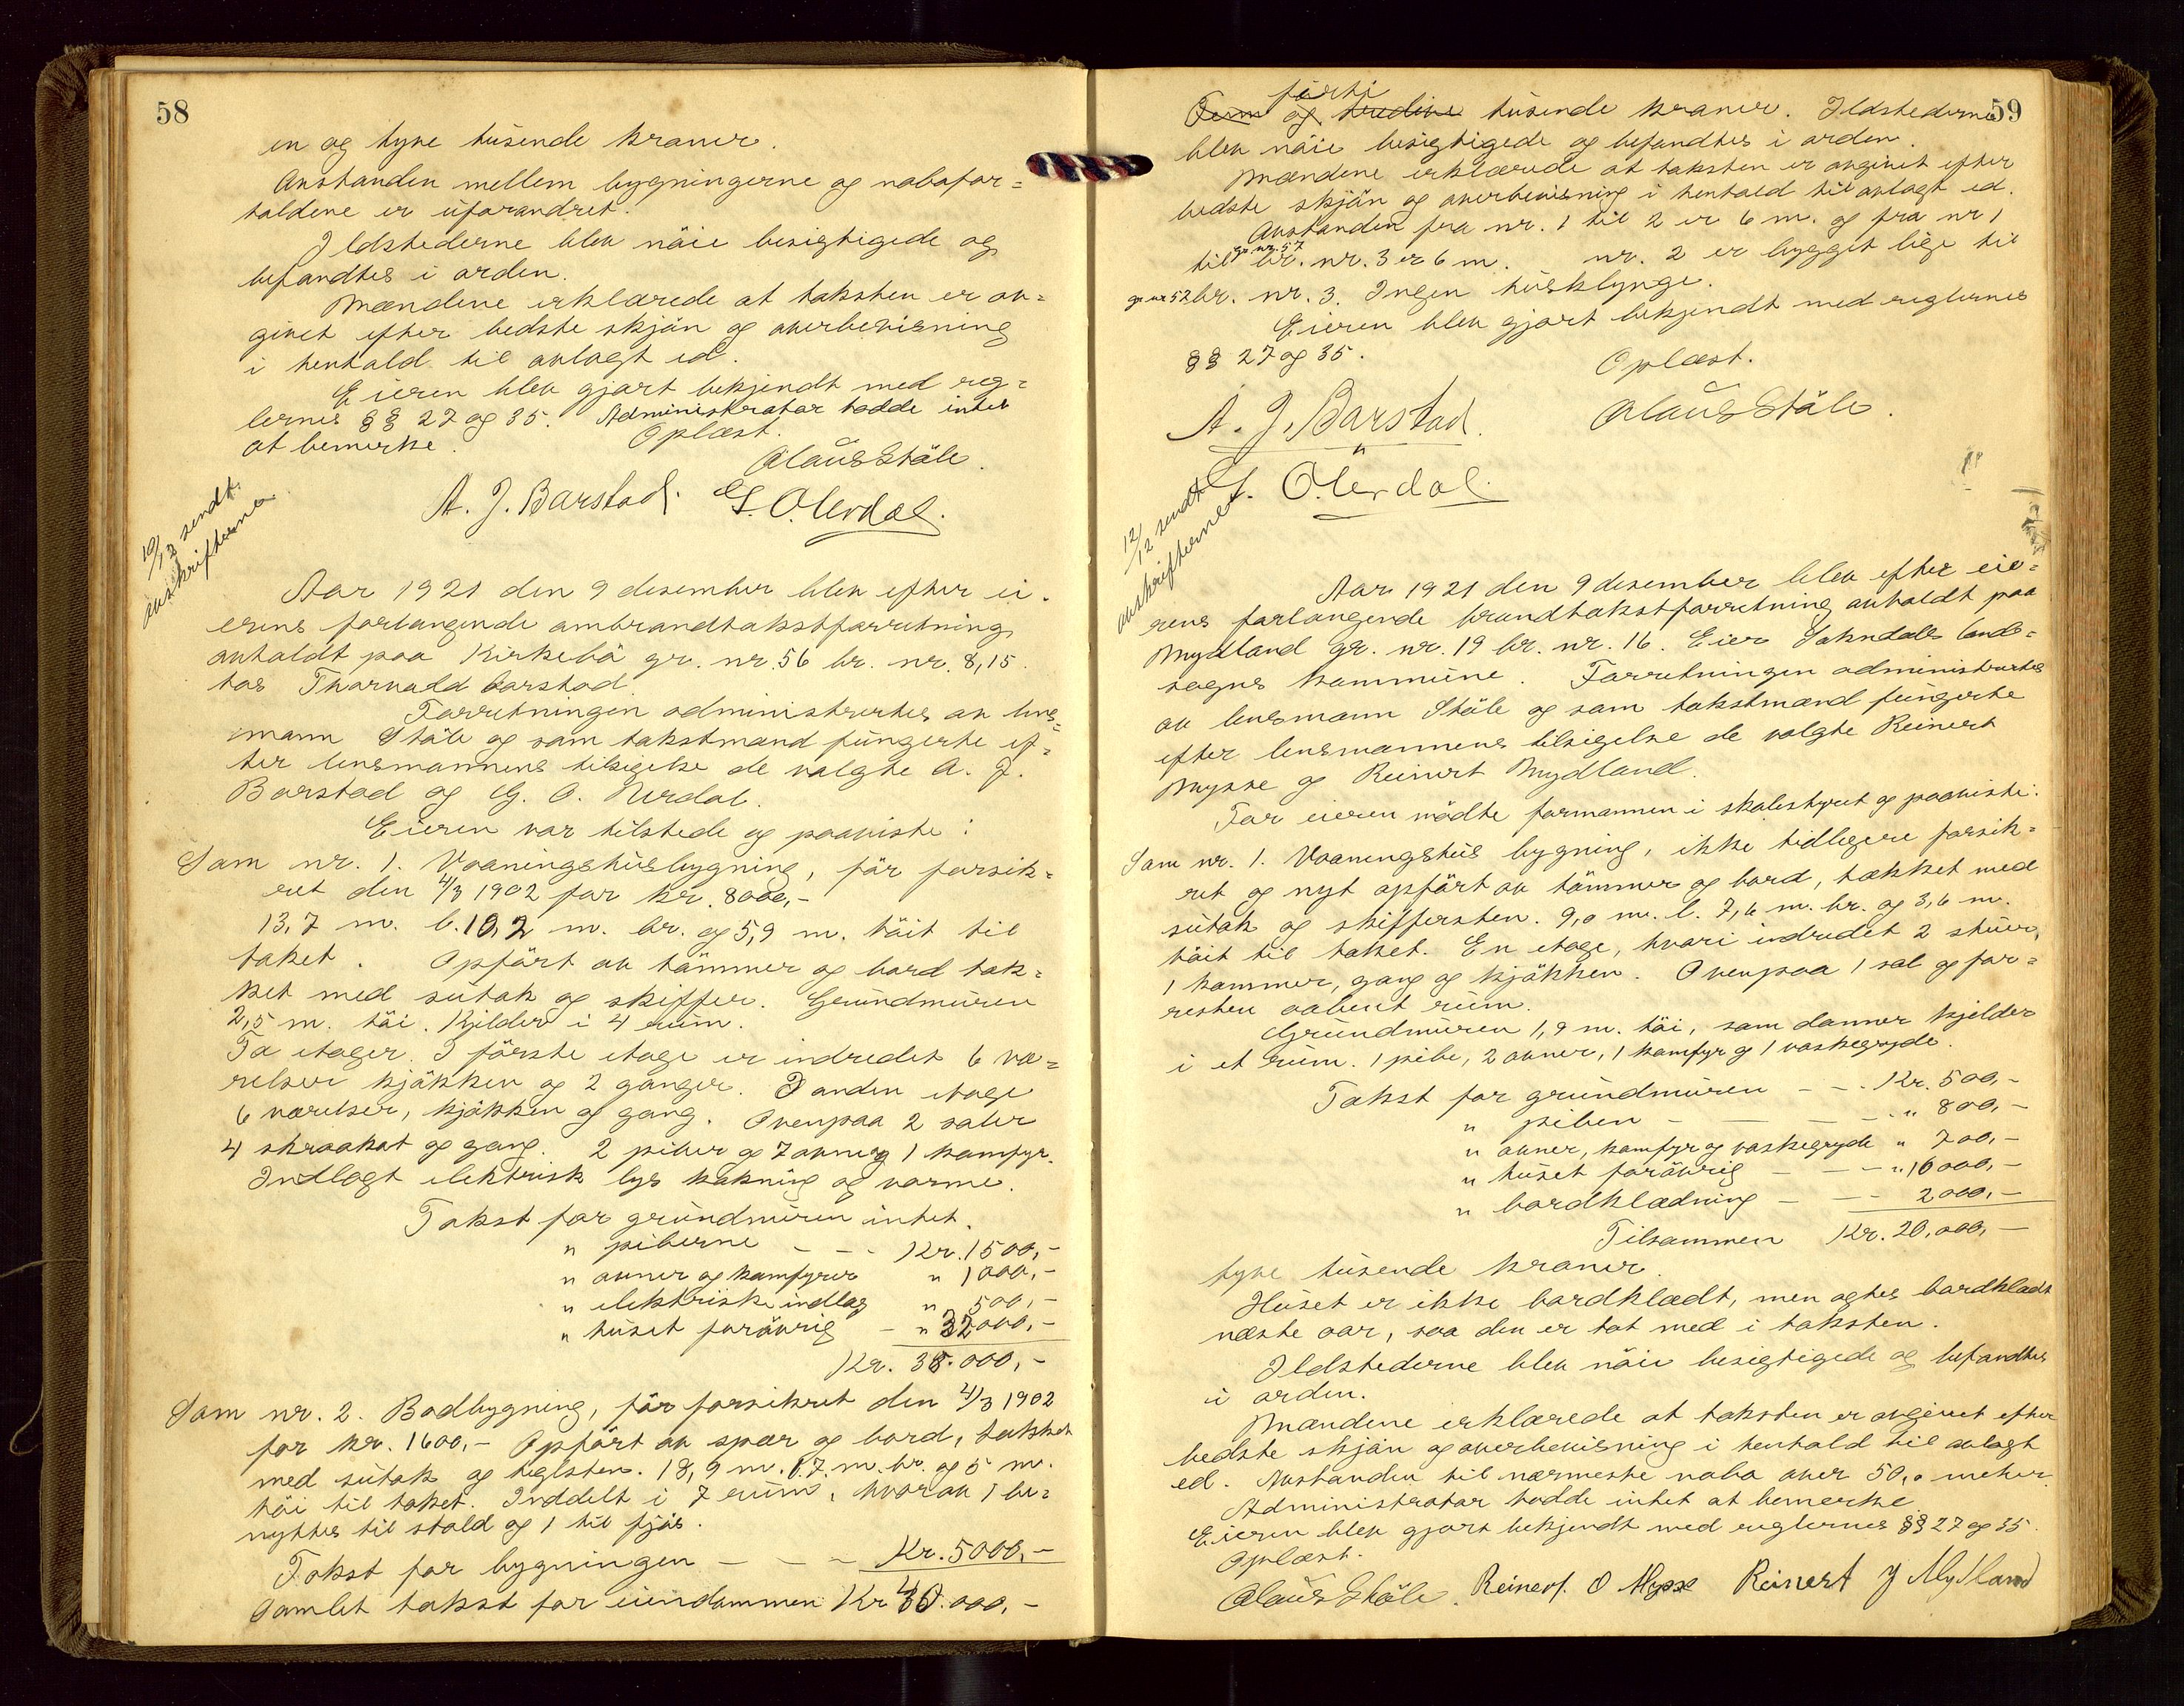 58
en og tyve tusende kroner.
Avstanden mellem bygningerne og nabofor=
holdene er uforandret.
Ildstederne blev nöie besigtigede og
befandtes i orden.
Mændene erklærede at taksten er av=
givet efter bedste skjön og overbevisning
i henhold til avlagt ed.
Eieren blev gjort bekjendt med reg=
lernes §§ 27 og 35. Administrator hadde intet
at bemerke.
Oplæst.
Olaus Ståle.
A. J. Barstad. G. O. Nerdal.
10/12 sendt
avskrifterne
Aar 1921 den 9 desember blev efter ei-
erens forlangende ombrandtakstforretning
avholdt paa Kirkebö gr. nr. 56 br. nr. 8,15.
hos Thorvald Barstad.
Forretningen administrertes av lens=
mann Ståle og som takstmænd fungerte ef=
ter lensmannens tilsigelse de valgte A. J.
Barstad og G. O. Nerdal.
Eieren var tilstede og paaviste:
Som nr. 1. Vaaningshusbygning, för forsik=
ret den 4/3 1902 for kr. 8000,-
13,7 m. l. 10,2 m. br. og 5,9 m. höit til
taket. Opfört av tömmer og bord tæk=
ket med sutak og skiffer. Grundmuren
2,5 m. höi. Kjelder i 4 rum.
To etager. I förste etage er indredet 6 væ=
relser kjökken og 2 ganger. I anden etage
6 værelser, kjökken og gang. Ovenpaa 2 saler
4 skraakot og gang. 2 piber og 7 ovner og 1 komfyr.
Indlagt elektrisk lys kokning og varme.
Takst for grundmuren intet.
" piberne - - - Kr. 1500,-
" ovner og komfyrer " 1000,-
" elektriske indlæg " 500,-
" huset forövrig - " 32000,-
Kr. 35.000,-
Som nr. 2. Bodbygning, för forsikret den 4/3 1902
for kr. 1600,- Opfört av spær og bord, tækket
med sutak og teglsten. 18,9 m. l. 7. m. br. og 5 m.
höi til taket. Inddelt i 7 rum, hvorav 1 be=
nyttes til stald og 1 til fjös.
Takst for bygningen - - - Kr. 5000,-
Samlet takst for eiendommen Kr 40.000,-
59
förti
Fem og tredive tusende kroner. Ildstederne
blev nöie besigtigede og befandtes i orden.
Mændene erklærede at taksten er avgivet efter
bedste skjön og overbevisning i henhold til avlagt ed.
Avstanden fra nr. 1 til 2 er 6 m. og fra nr 1
gr. nr. 57
til br. nr. 3 er 6 m. nr. 2 er bygget lige til
gr nr 52 br. nr. 3. Ingen husklynge.
Eieren blev gjort bekjendt med reglernes
§§ 27 og 35.
Oplæst.
A. J. Barstad. Olaus Ståle.
G. O. Nerdal.
12/12 sendt
avskrifterne
Aar 1921 den 9 desember blev efter eie=
rens forlangende brandtakstforretning avholdt paa
Mydland gr. nr. 19 br. nr. 16. Eier Sokndals lands=
sogns kommune. Forretningen administrertes
av lensmann Ståle og som takstmænd fungerte
efter lensmannens tilsigelse de valgte Reinert
Mysse og Reinert Mydland.
For eieren mödte formannen i skolestyret og paaviste:
Som nr. 1. Vaaningshus bygning, ikke tidligere forsik=
ret og nyt opfört av tömmer og bord, tækket med
sutak og skiffersten. 9,0 m. l. 7,6 m. br. og 3,6 m.
höit til taket. En etage, hvori indredet 2 stuer,
1 kammer, gang og kjökken. Ovenpaa 1 sal og for=
resten aabent rum.
Grundmuren 1,9 m. höi, som danner kjelder
i et rum. 1 pibe, 2 ovner, 1 komfyr og 1 vaskegryde.
Takst for grundmuren - - - Kr. 500,-
" piben - - - " 800,-
" ovner, komfyr og vaskegryde " 700,-
" huset forövrig - - - " 16000,-
" bordklædning - - - 2000,-
Tilsammen Kr. 20,000,-
tyve tusende kroner.
Huset er ikke bordklædt, men agtes bordklædt
næste aar, saa den er tat med i taksten.
Ildstederne blev nöie besigtigede og befandtes
i orden.
Mændene erklærede at taksten er avgivet efter
bedste skjön og overbevisning i henhold til avlagt
ed. Avstanden til nærmeste nabo over 50,0 meter
Administrator hadde intet at bemerke.
Eieren blev gjort bekjendt med reglernes §§ 27 og 35.
Oplæst.
Olaus Ståle. Reinert O Mysse Reinert J Mydland